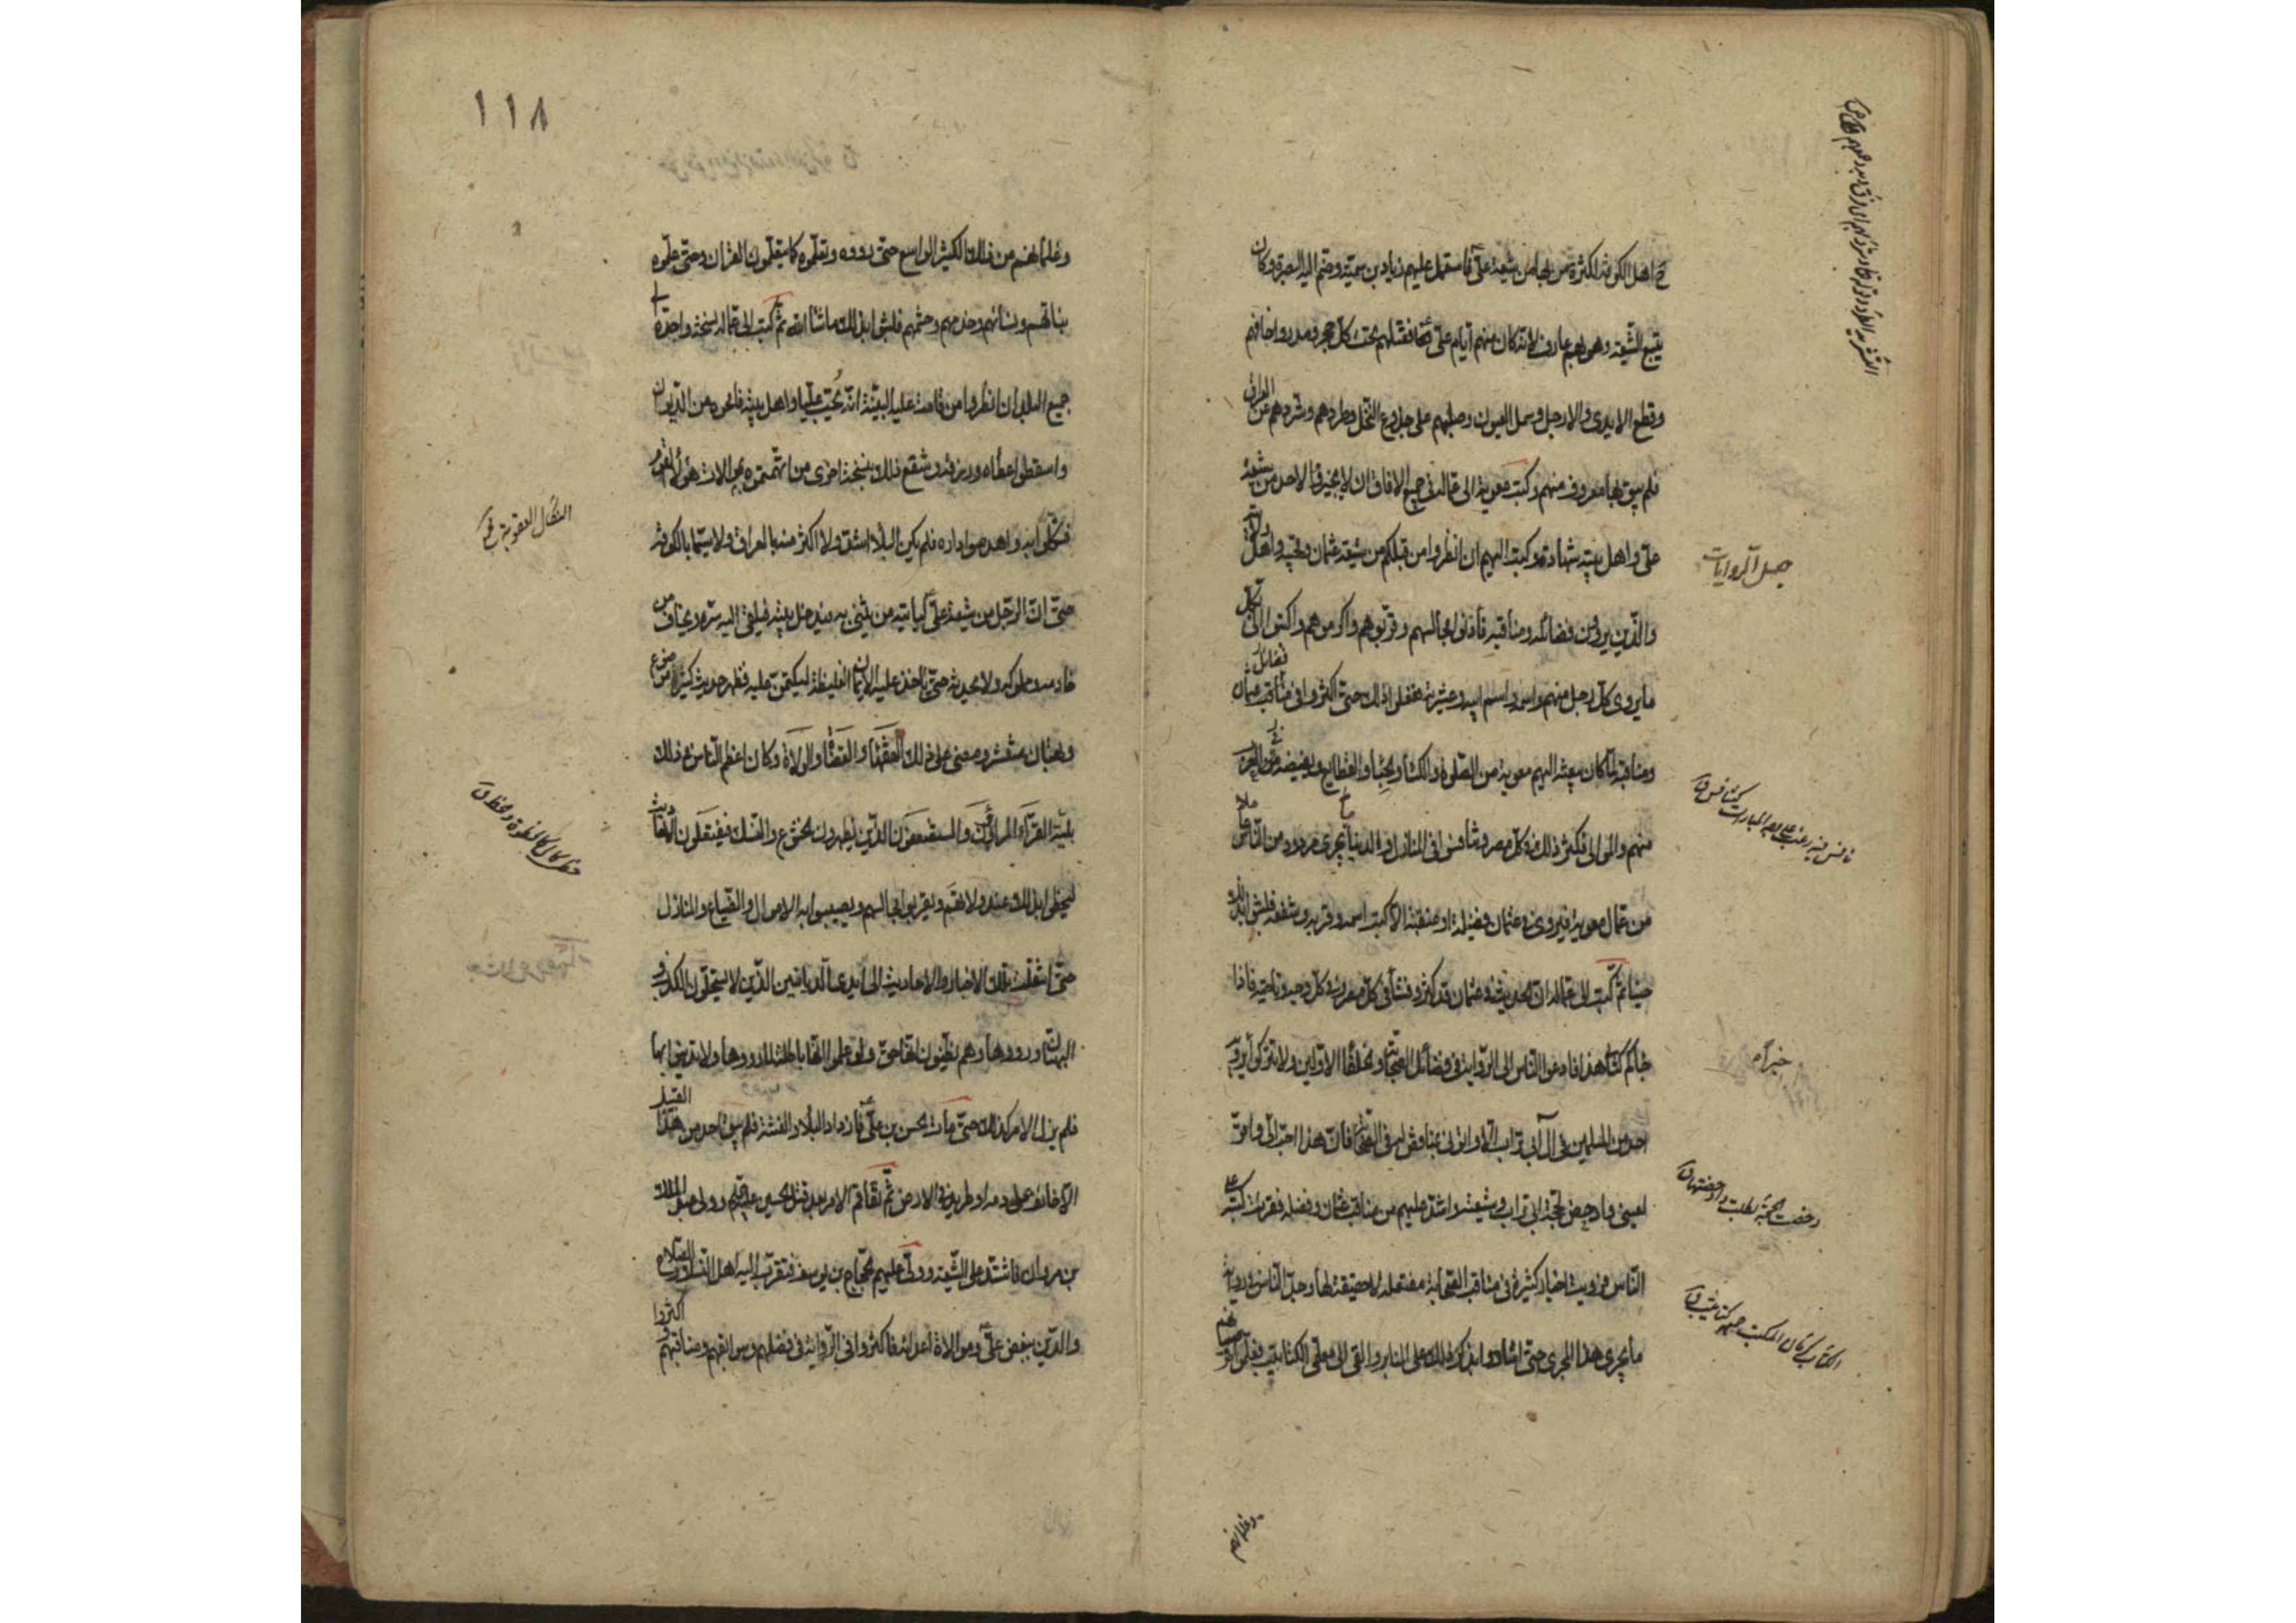 اهل الكوفة لكثرة من بها من شيعة علي ع فاستعمل عليهم زياد بن سمية وضم اليه البصرة وكان
يتبع الشيعة وهو بهم عارف لانه كان منهم ايام علي ع فقتلهم تحت كل حجر ومدر واخافهم
وقطع الايدى والارجل وسمل العيون وصلبهم على جذوع النخل وطردهم وشردهم عن العراق
فلم يبق بها معروف منهم وكتب معوية الى عماله في جميع الافاق ان لا يجيزوا لاحد من شيعة
على واهل بيته شهادة وكتب اليهم ان انظروا من قبلكم من شيعة عثمان ومحبيه واهل ولايته
والذين يروون فضائله ومناقبه فادنوا مجالسهم وقربوهم واكرموهم واكتبوا الى بكل
ما يروى كل رجل منهم واسمه واسم ابيه وعشيرته ففعلوا ذلك حتى اكثروا فى فضائل عثمان
ومناقبه لما كان يبعثه اليهم معوية من الصلوة والكساء والحباء والقطايع ويفيضه في العرب
منهم والموالى فكثر ذلك في كل مصر وتنافسوا فى المنازل والدنيا فليس يجرى مردود من الناس
من عمال معوية فيروى في عثمان فضيلة او منقبة الا كتب اسمه وقربه وشفعه فلبثوا بذلك
حينا ثم كتب الى عماله ان الحديث في عثمان قد كثر وفشا فى كل مصر وفي كل وجه وناحية فاذا
جاءكم كتابى هذا فادعوا الناس الى الرواية فى فضائل الصحابة والخلفاء الاولين ولا تتركوا خبرا يرويه
احد من المسلمين في ابى تراب الا واتونى بمناقض له فى الصحابة فان هذا احب الى واقر
لعينى وادحض لحجة ابى تراب وشيعته واشد عليهم من مناقب عثمان وفضله فقرئت كتبه على
الناس فرويت اخبار كثيرة فى مناقب الصحابة مفتعلة لا حقيقة لها وجد الناس في رواية
ما يجرى هذا المجرى حتى اشادوا بذكر ذلك على المنابر والقى الى معلمى الكتاتيب فعلموا صبيانهم
جهل الروايات
خبرا م
وغلمانهم
١١٨
وغلمانهم من ذلك الكثير الواسع حتى رووه وتعلموه كما يتعلمون القرآن وحتى علموه
بناتهم ونسائهم وخدمهم وحشمهم فلبثوا بذلك ما شاء الله ثم كتب الى عماله نسخة واحدة الى
جميع البلدان انظروا من قامت عليه البينة انه يحب عليا واهل بيته فامحوه من الديوان
واسقطوا عطاءه ورزقه وشفع ذلك بنسخة اخرى من اتهمتموه بموالات هؤلاء القوم
فنكلوا به واهدموا داره فلم يكن البلاء اشد ولا اكثر منه بالعراق ولا سيما بالكوفة
حتى ان الرجل من شيعة على ع لياتيه من يثق به فيدخل بيته فيلقى اليه سره ويخاف من
خادمه ومملوكه ولا يحدثه حتى ياخذ عليه الايمان الغليظة ليكتمن عليه فظهر حديث كثير موضوع
وبهتان منتشر ومضى على ذلك الفقهاء والقضاة والولاة وكان اعظم الناس في ذلك
بلية القراء المراؤن والمستضعفون الذين يظهرون الخشوع والنسك فيفتعلون الاحاديث
ليحظوا بذلك عند ولاتهم ويقربوا مجالسهم ويصيبوا به الاموال والضياع والمنازل
حتى انتقلت تلك الاخبار والاحاديث الى ايدى الديانين الذين لا يستحلون الكذب و
البهتان ورووها وهم يظنون انها حق ولو علموا انها باطلة لما رووها ولا تدينوا بها
فلم يزل الامر كذلك حتى مات الحسن بن على ع فازداد البلاء والفتنة فلم يبق احد من هذا القبيل
الا خائف على دمه او طريد في الارض ثم تفاقم الامر بعد قتل الحسين عليه السلم وولى عبد الملك
بن مروان فاشتد على الشيعة وولى عليهم الحجاج بن يوسف فتقرب اليه اهل النسك والصلاح
والدين ببغض على ع وموالاة اعدائه فاكثروا فى الرواية فى فضلهم وسوابقهم ومناقبهم و اكثروا
النكال العقوبة